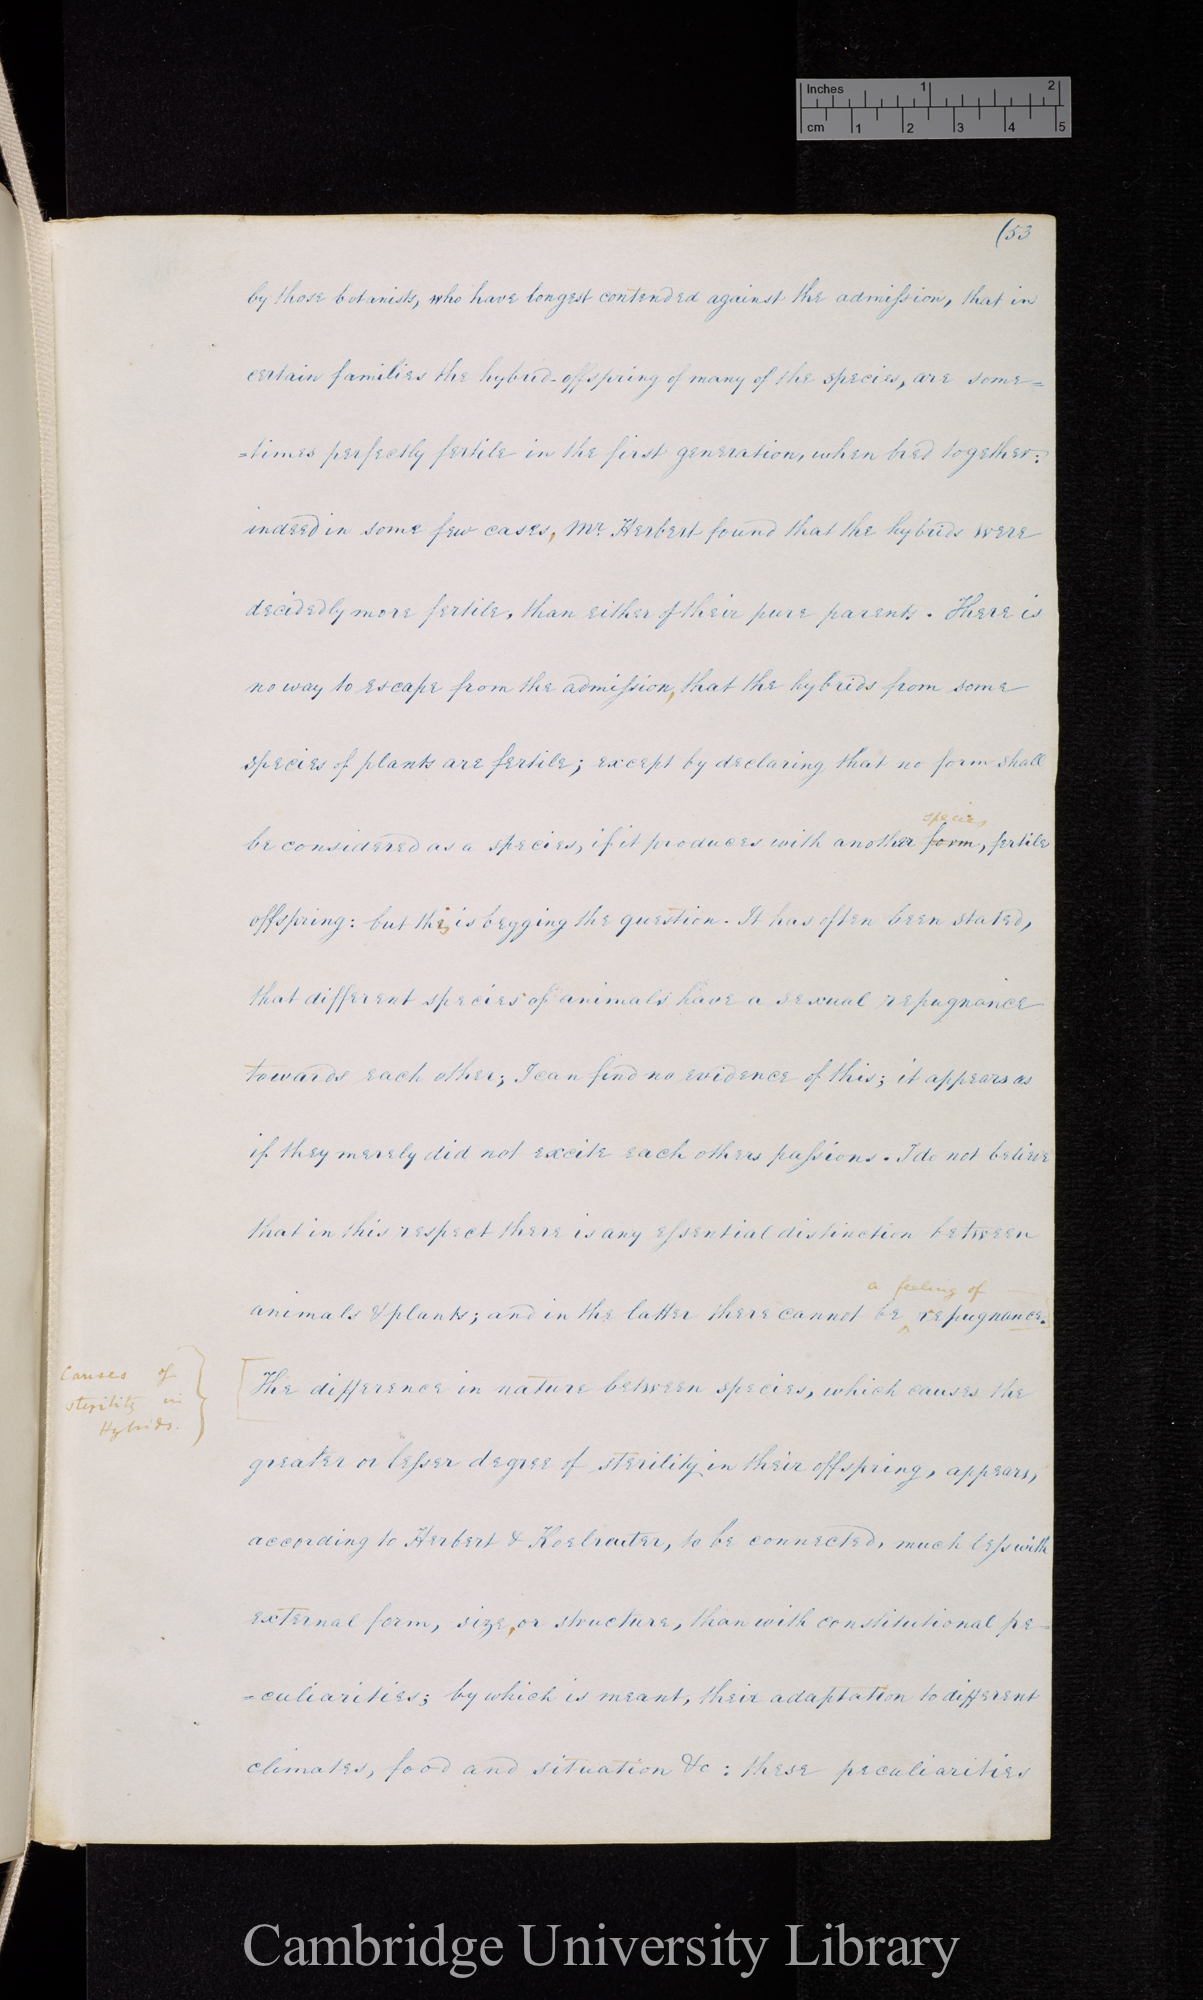 Inches 1 2
cm 1 2 3 4 5
(53
by those botanists, who have longest contended against the admiſsion, that in
certain families the hybrid-offspring of many of the species, are some=
=times perfectly fertile in the first generation, when bred together:
indeed in some few cases, Mr. Herbert found that the hybrids were
decidedly more fertile, than either of their pure parents. There is
no way to escape from the admiſsion, that the hybrids from some
species of plants are fertile; except by declaring that no form shall
species
be considered as a species, if it produces with another form, fertile
offspring: but this is begging the question. It has often been stated,
that different species of animals have a sexual repugnance
towards each other; I can find no evidence of this; it appears as
if they merely did not excite each others paſsions. I do not believe
that in this respect there is any eſsential distinction between
a feeling of
animals & plants; and in the latter there cannot be ^ repugnance.
Causes of
sterility in
Hybrids.
The difference in nature between species, which causes the
greater or leſser degree of sterility in their offspring, appears,
according to Herbert & Koelreuter, to be connected, much leſs with
external form, size, or structure, than with constitutional pe=
=culiarities; by which is meant, their adaptation to different
climates, food and situation &c: these peculiarities
Cambridge University Library